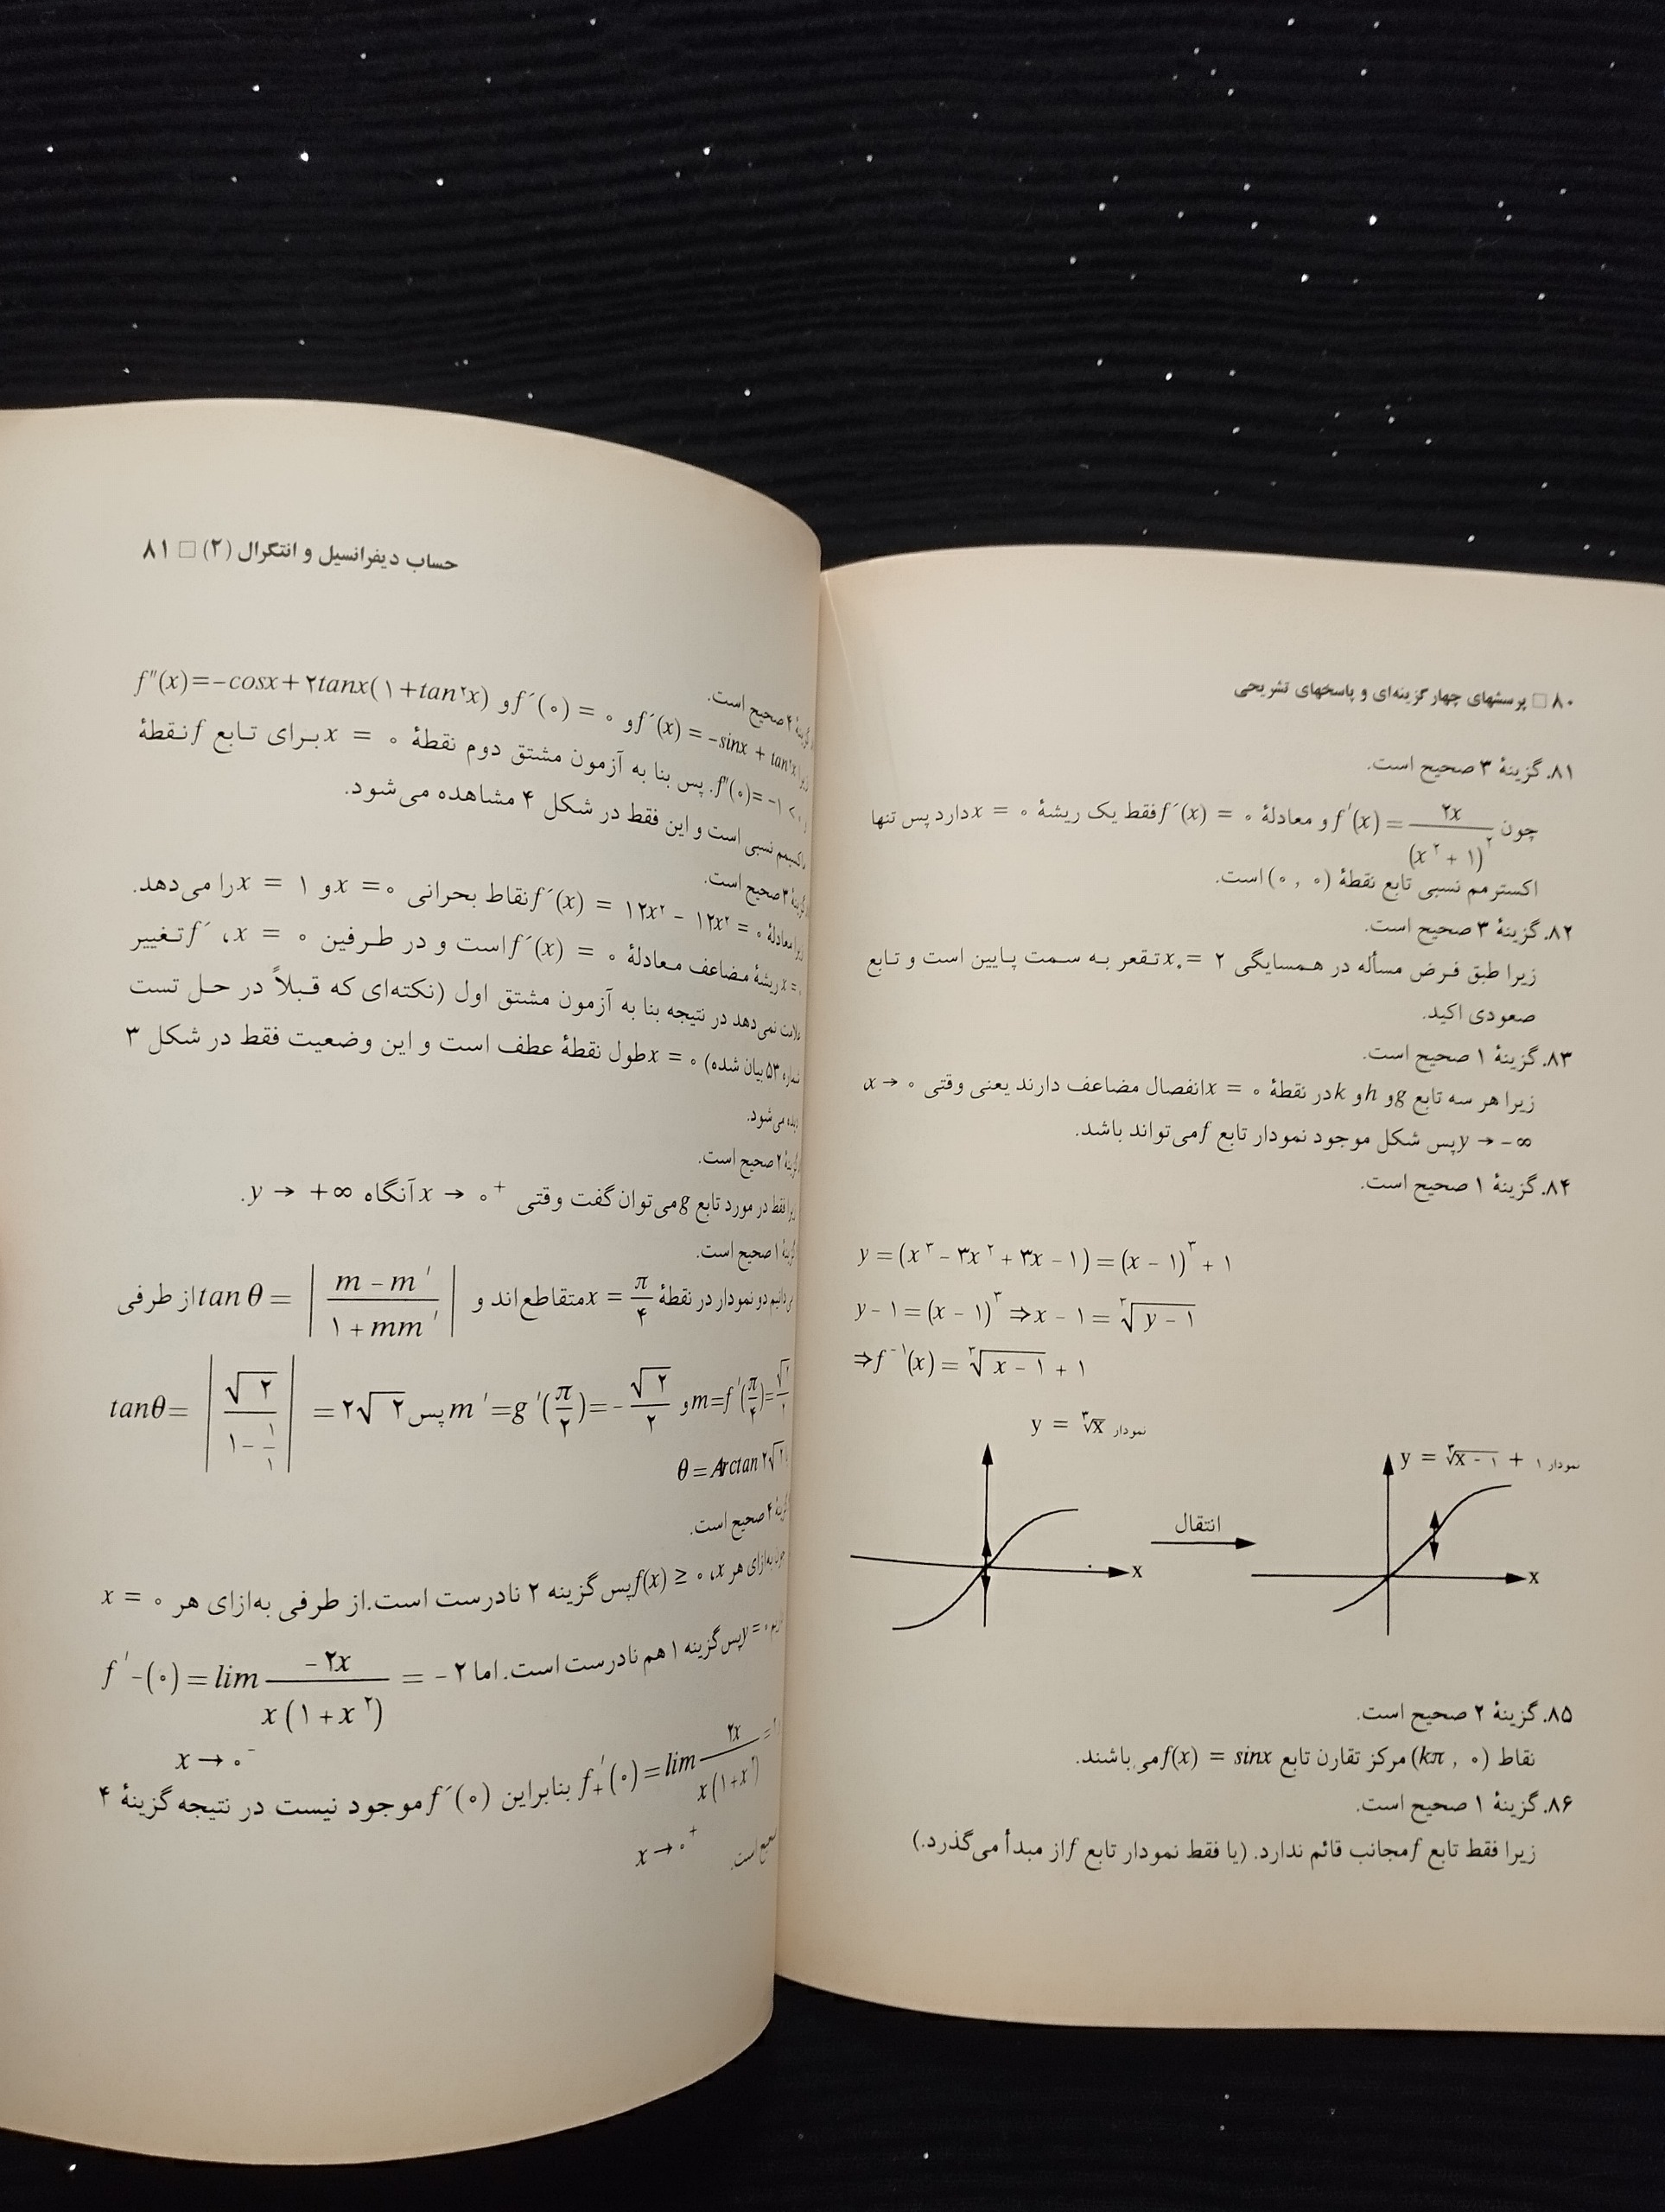 ۸۰ □ پرسشهای چهارگزینه‌ای و پاسخهای تشریحی
۸۱. گزینهٔ ۳ صحیح است.
چون f'(x) = ۲x / (x^۲ + ۱)^۲ و معادلهٔ f'(x) = ۰ فقط یک ریشهٔ x = ۰ دارد پس تنها
اکسترمم نسبی تابع نقطهٔ (۰ , ۰) است.
۸۲. گزینهٔ ۳ صحیح است.
زیرا طبق فرض مسأله در همسایگی x₀ = ۲ تقعر به سمت پایین است و تابع
صعودی اکید.
۸۳. گزینهٔ ۱ صحیح است.
زیرا هر سه تابع g و h و k در نقطهٔ x = ۰ انفصال مضاعف دارند یعنی وقتی x → ۰
y → -∞ پس شکل موجود نمودار تابع f می‌تواند باشد.
۸۴. گزینهٔ ۱ صحیح است.
y = (x^۳ - ۳x^۲ + ۳x - ۱) = (x - ۱)^۳ + ۱
y - ۱ = (x - ۱)^۳ ⇒ x - ۱ = ∛(y - ۱)
⇒ f^-۱(x) = ∛(x - ۱) + ۱
نمودار y = ∛x
نمودار y = ∛(x - ۱) + ۱
انتقال
x
x
۸۵. گزینهٔ ۲ صحیح است.
نقاط (kπ , ۰) مرکز تقارن تابع f(x) = sinx می‌باشند.
۸۶. گزینهٔ ۱ صحیح است.
زیرا فقط تابع f مجانب قائم ندارد. (یا فقط نمودار تابع f از مبدأ می‌گذرد.)
حساب دیفرانسیل و انتگرال (۲) □ ۸۱
گزینهٔ ۴ صحیح است.
زیرا f'(x) = -sinx + tan^۲x و f'(۰) = ۰ و f''(x) = -cosx + ۲tanx(۱+tan^۲x)
f''(۰) = -۱ < ۰. پس بنا به آزمون مشتق دوم نقطهٔ x = ۰ برای تابع f نقطهٔ
ماکسیمم نسبی است و این فقط در شکل ۴ مشاهده می‌شود.
گزینهٔ ۳ صحیح است.
زیرا معادلهٔ f'(x) = ۱۲x^۲ - ۱۲x^۲ = ۰ نقاط بحرانی x = ۰ و x = ۱ را می‌دهد.
x = ۰ ریشهٔ مضاعف معادلهٔ f'(x) = ۰ است و در طرفین x = ۰، f' تغییر
علامت نمی‌دهد در نتیجه بنا به آزمون مشتق اول (نکته‌ای که قبلاً در حل تست
شماره ۵۳ بیان شده) x = ۰ طول نقطهٔ عطف است و این وضعیت فقط در شکل ۳
دیده می‌شود.
گزینهٔ ۲ صحیح است.
زیرا فقط در مورد تابع g می‌توان گفت وقتی x → ۰⁺ آنگاه y → +∞.
گزینهٔ ۱ صحیح است.
می‌دانیم دو نمودار در نقطهٔ x = π/۴ متقاطع‌اند و tan θ = |(m - m') / (۱ + mm')| از طرفی
m = f'(π/۴) = √۲/۲ و m' = g'(π/۲) = -√۲/۲ پس tanθ = |√۲ / (۱ - ۱/۱)| = ۲√۲
θ = Arctan ۲√۲
گزینهٔ ۴ صحیح است.
چون به‌ازای هر x، f(x) ≥ ۰ پس گزینه ۲ نادرست است. از طرفی به‌ازای هر x = ۰
داریم y = ۰ پس گزینه ۱ هم نادرست است. اما f'-(۰) = lim -۲x / x(۱ + x^۲) = -۲
x → ۰⁻
f'₊(۰) = lim ۲x / x(۱+x^۲) = ۲ بنابراین f'(۰) موجود نیست در نتیجه گزینهٔ ۴
x → ۰⁺
صحیح است.